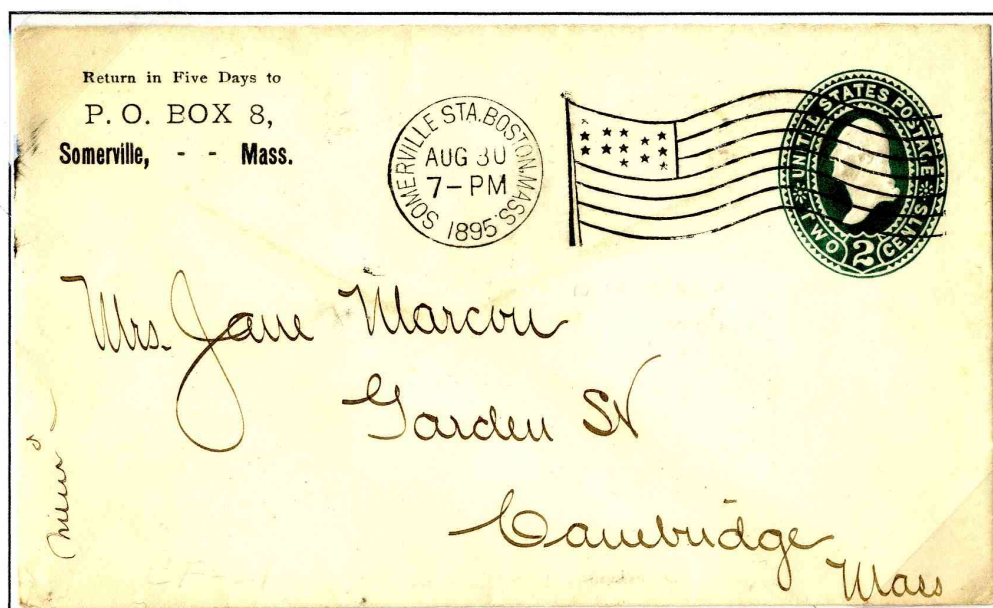 Return in Five Days to
P. O. BOX 8,
Somerville, - - Mass.
SOMERVILLE STA. BOSTON, MASS.
AUG 30
7-PM
1895
UNITED STATES POSTAGE
TWO 2 CENTS
Mrs. Jane Marcou
Garden St
Cambridge
Mass